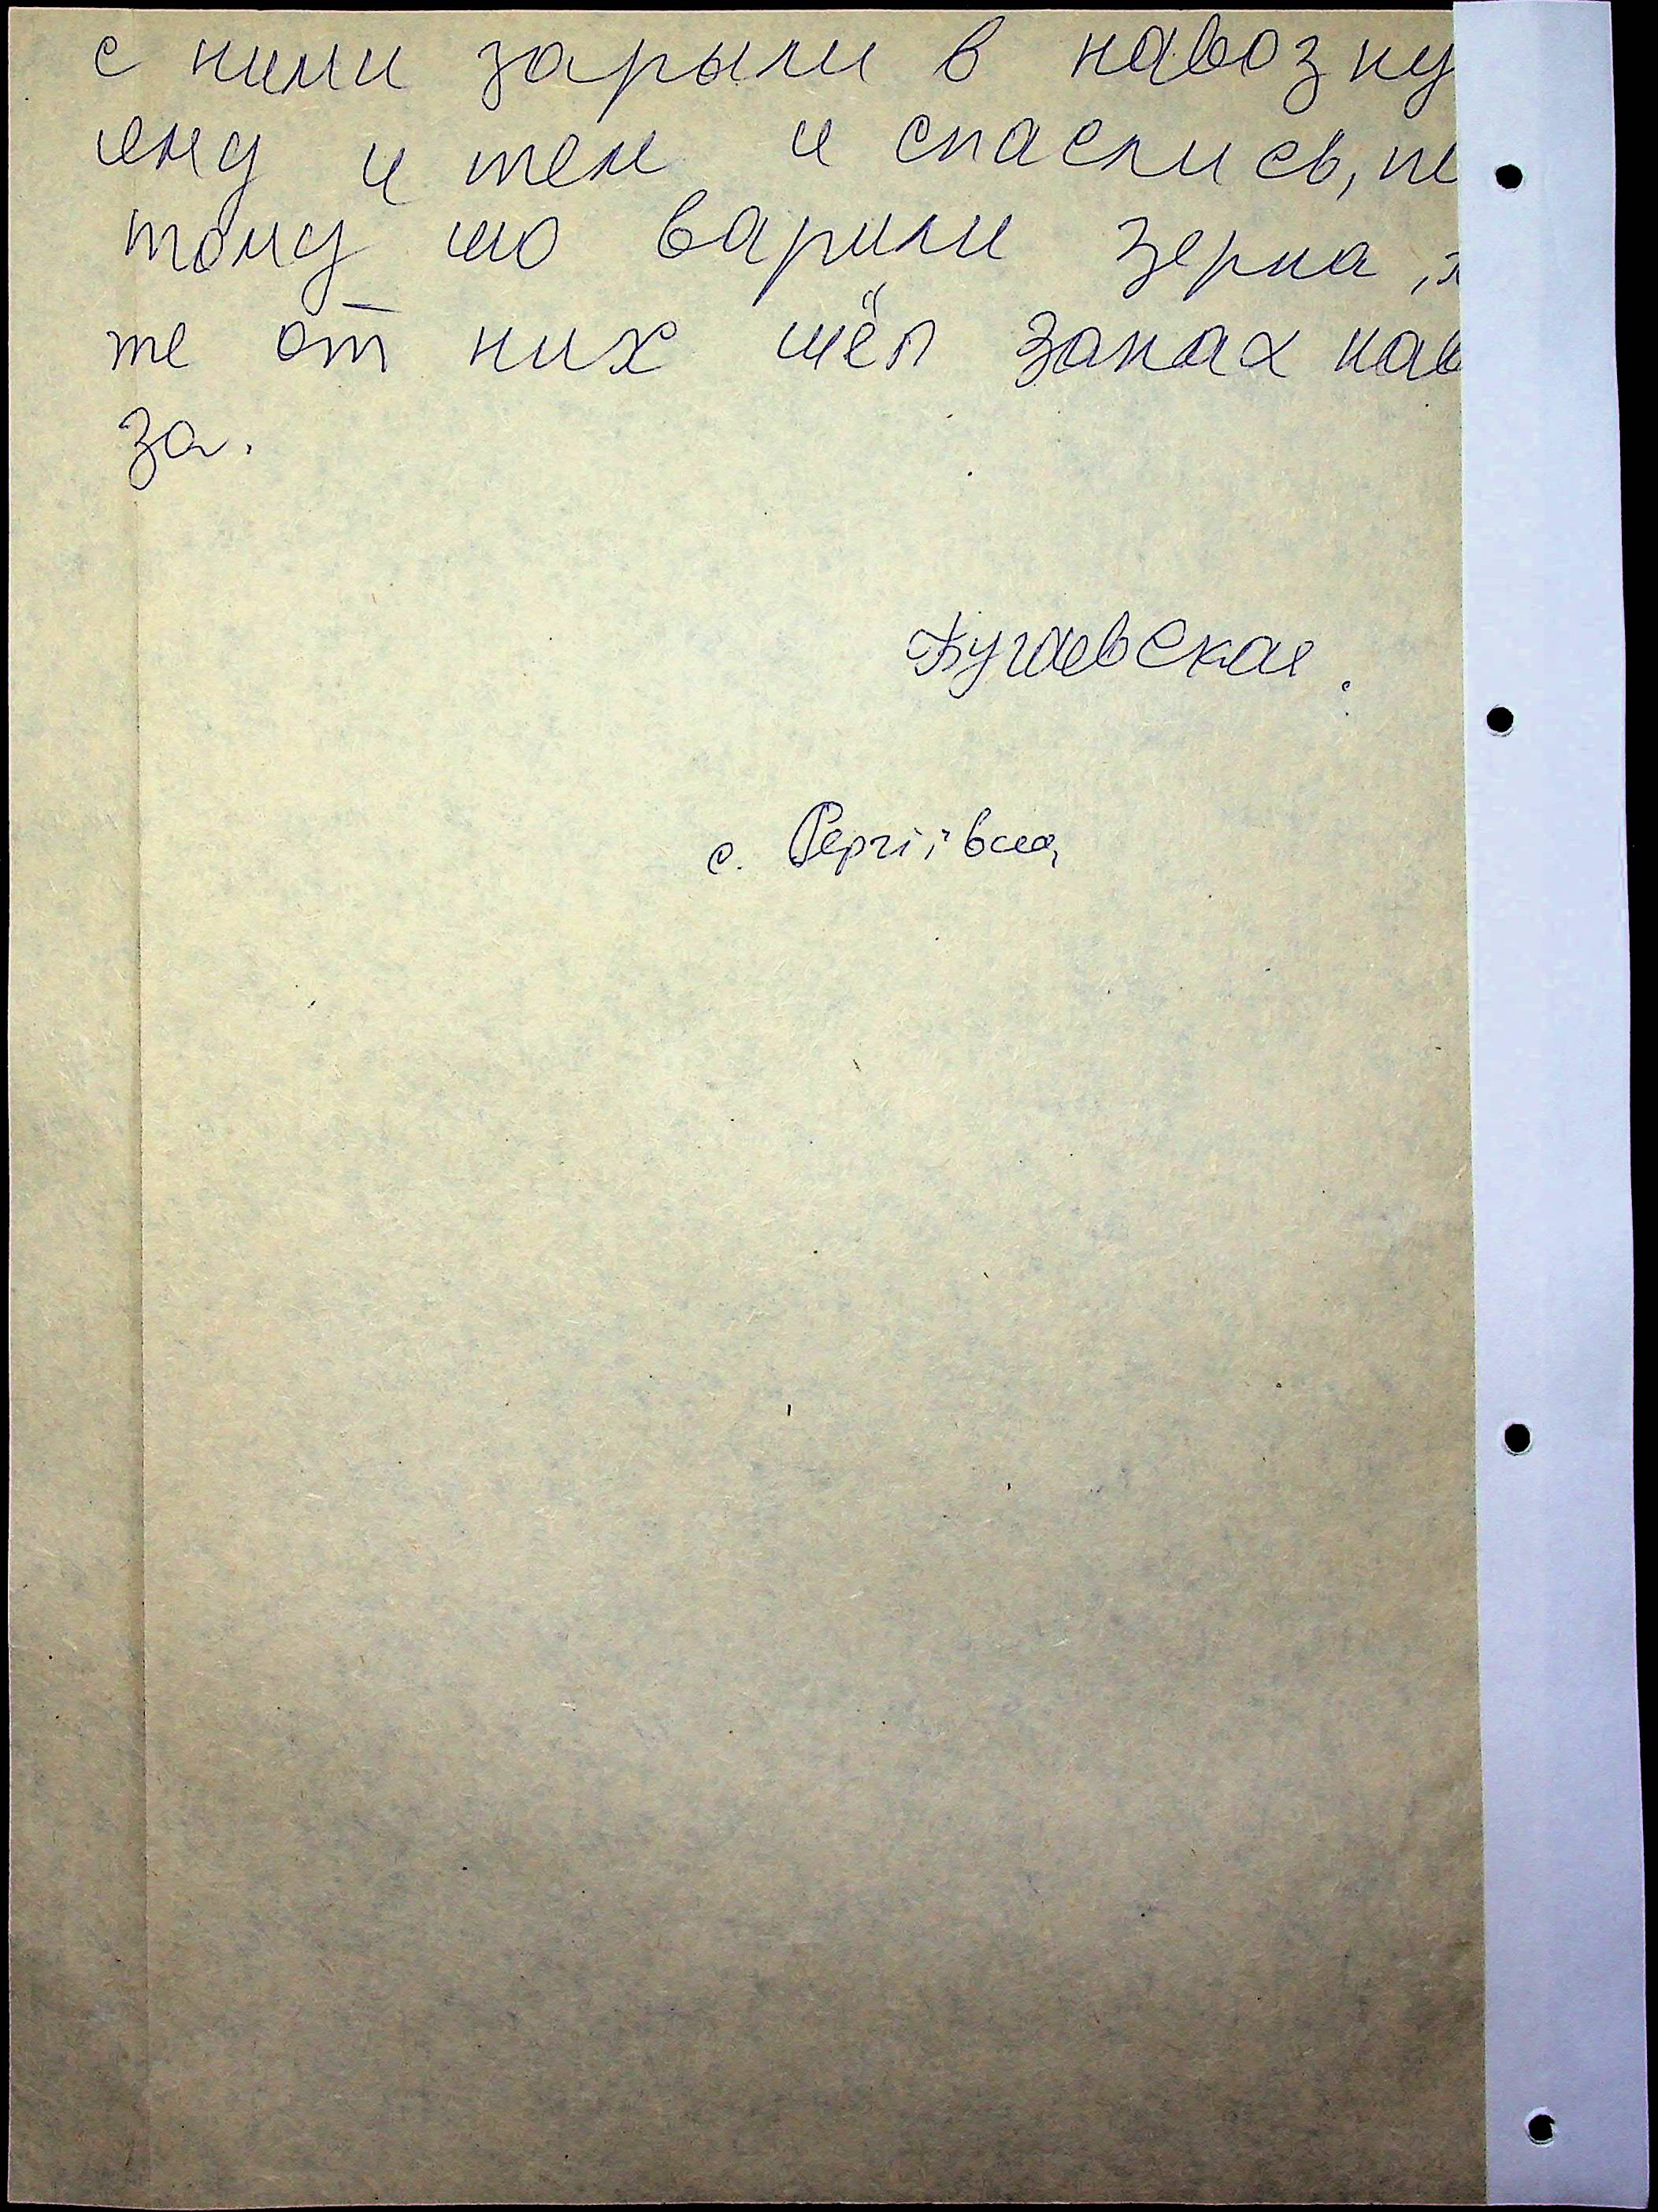 с ними зарыли в навозну
яму и тем и спаслись, по
тому шо варили зерна, х
же от них шёл запах нав
за.
Бугаевская.
с. Сергіївка